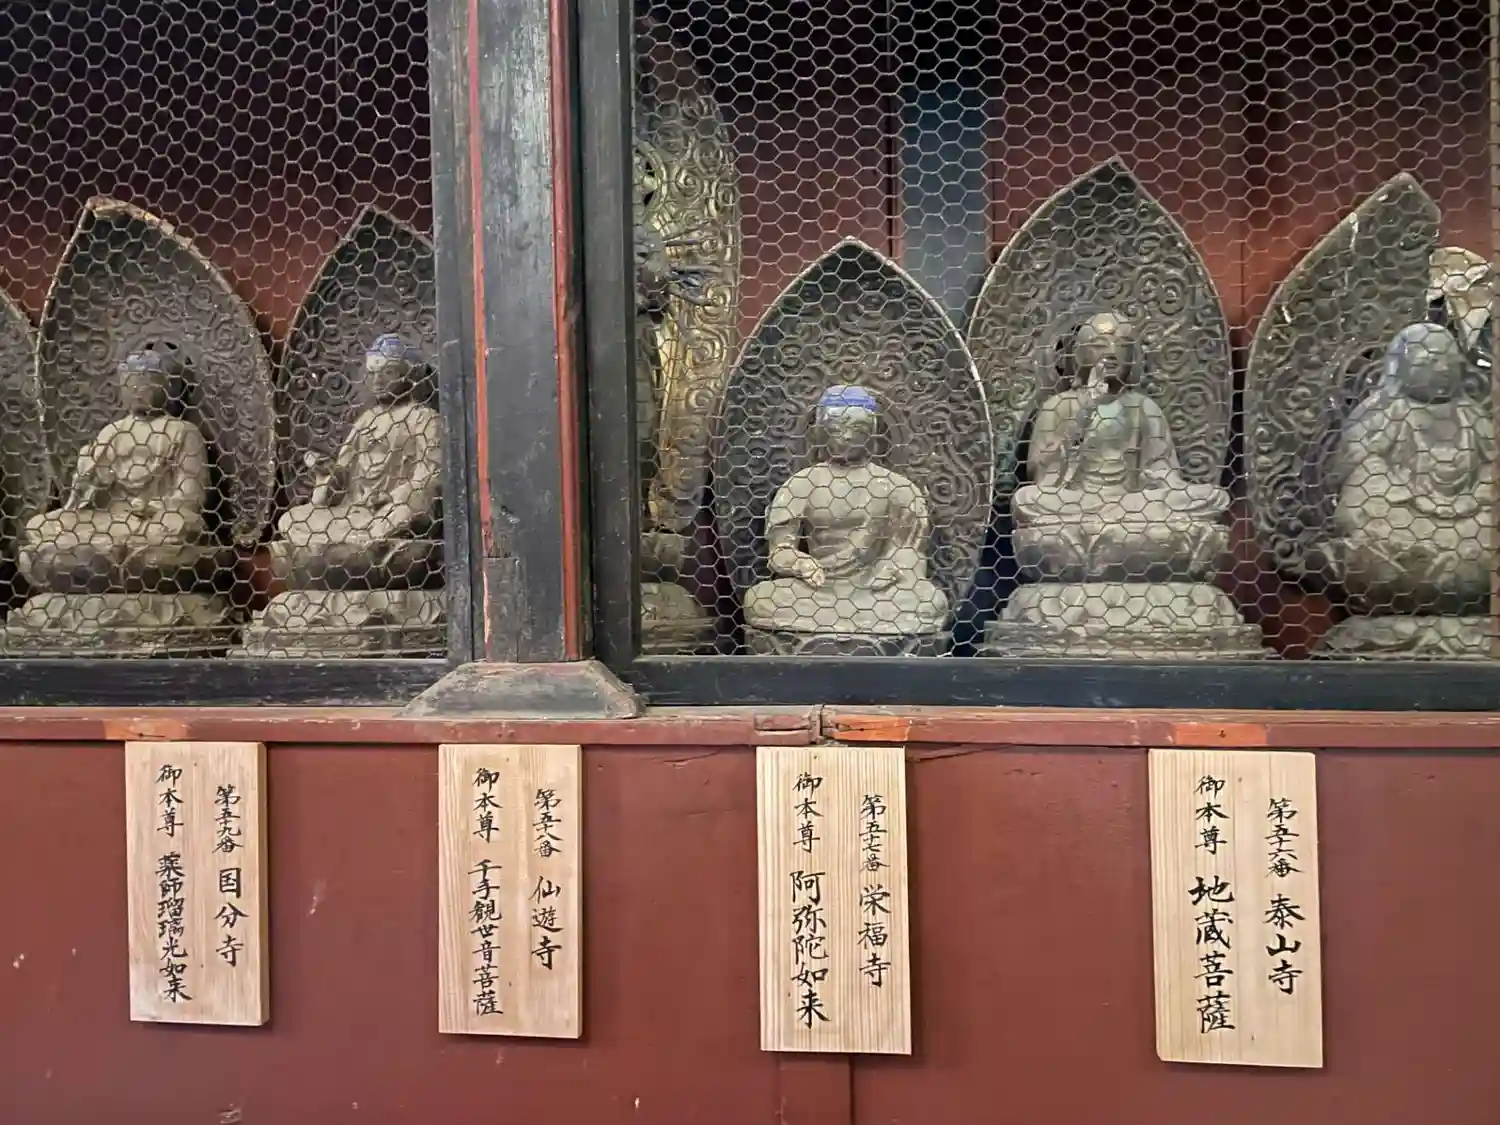 第五十六番 泰山寺
御本尊 地蔵菩薩
第五十七番 栄福寺
御本尊 阿弥陀如来
第五十八番 仙遊寺
御本尊 千手観世音菩薩
第五十九番 国分寺
御本尊 薬師瑠璃光如来